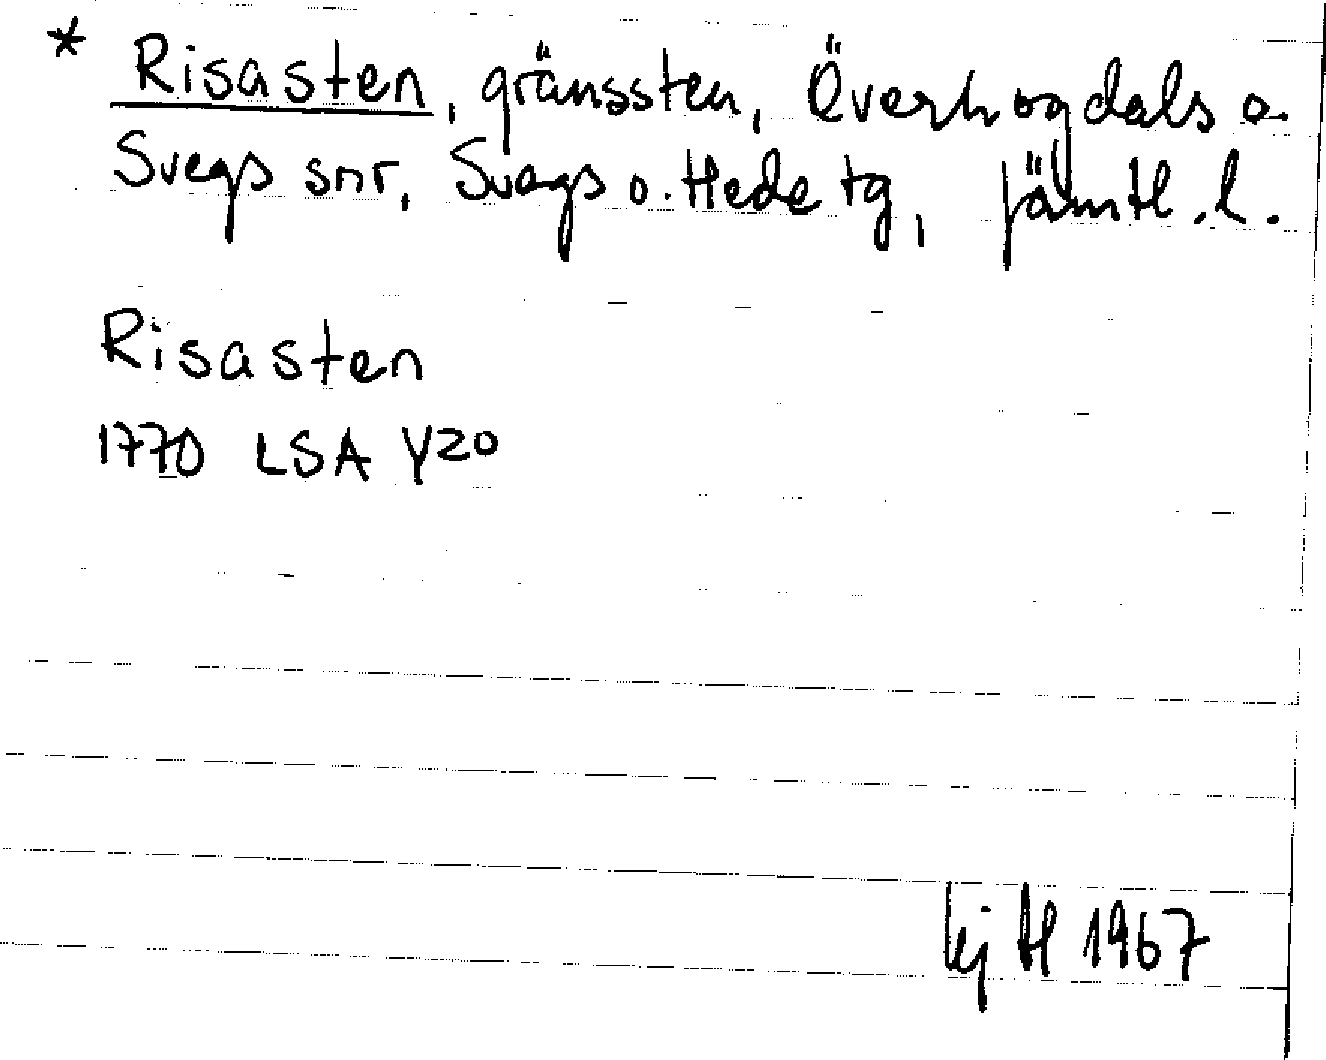 * Risasten, gränssten, Överhogdals o.
Svegs snr, Svegs o. Hede tg, Jämtl. l.
Risasten
1770 LSA Y20
1967